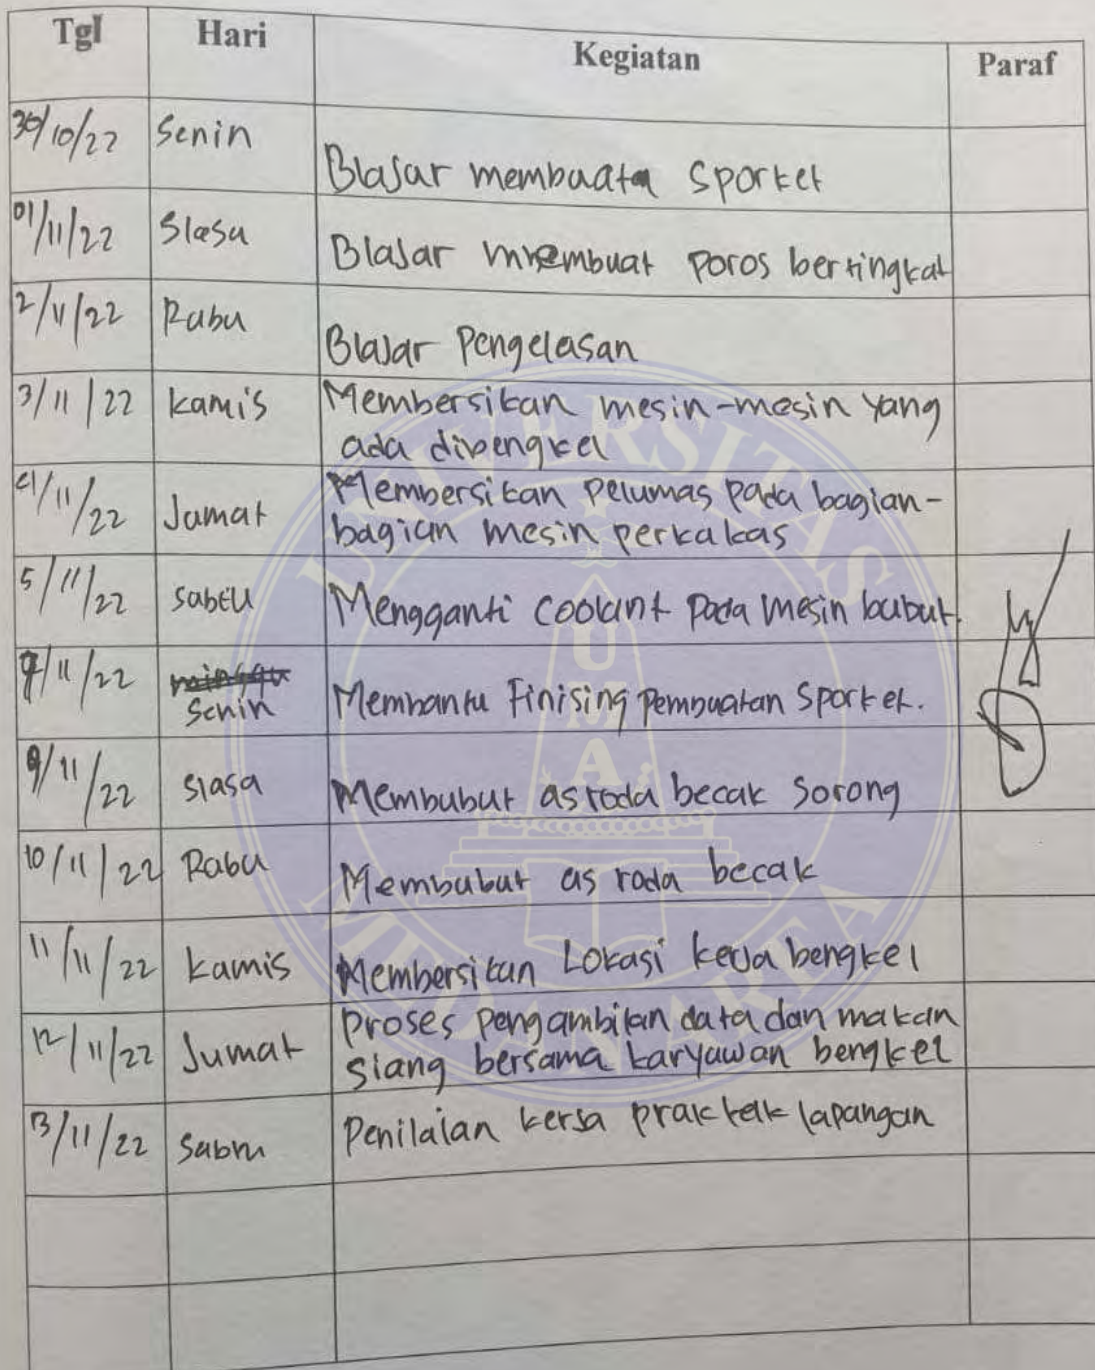 Tgl Hari Kegiatan Paraf
30/10/22 Senin Blajar membuata Sporket
01/11/22 Slasa Blajar membuat poros bertingkat
2/11/22 Rabu Blajar Pengelasan
3/11/22 kamis Membersikan mesin-mesin yang
ada dibengkel
4/11/22 Jumat Membersikan pelumas pada bagian-
bagian mesin perkakas
5/11/22 sabtu Mengganti coolant pada mesin bubut.
7/11/22 minggu
Senin Membantu Finising Pembuatan Sporket.
9/11/22 slasa Membubut as roda becak Sorong
10/11/22 Rabu Membubut as roda becak
11/11/22 kamis Membersikan Lokasi kerja bengkel
12/11/22 Jumat proses pengambilan data dan makan
siang bersama karyawan bengkel
13/11/22 Sabtu Penilaian kerja praktek lapangan
UNIVERSITAS
MEDAN AREA
UMA